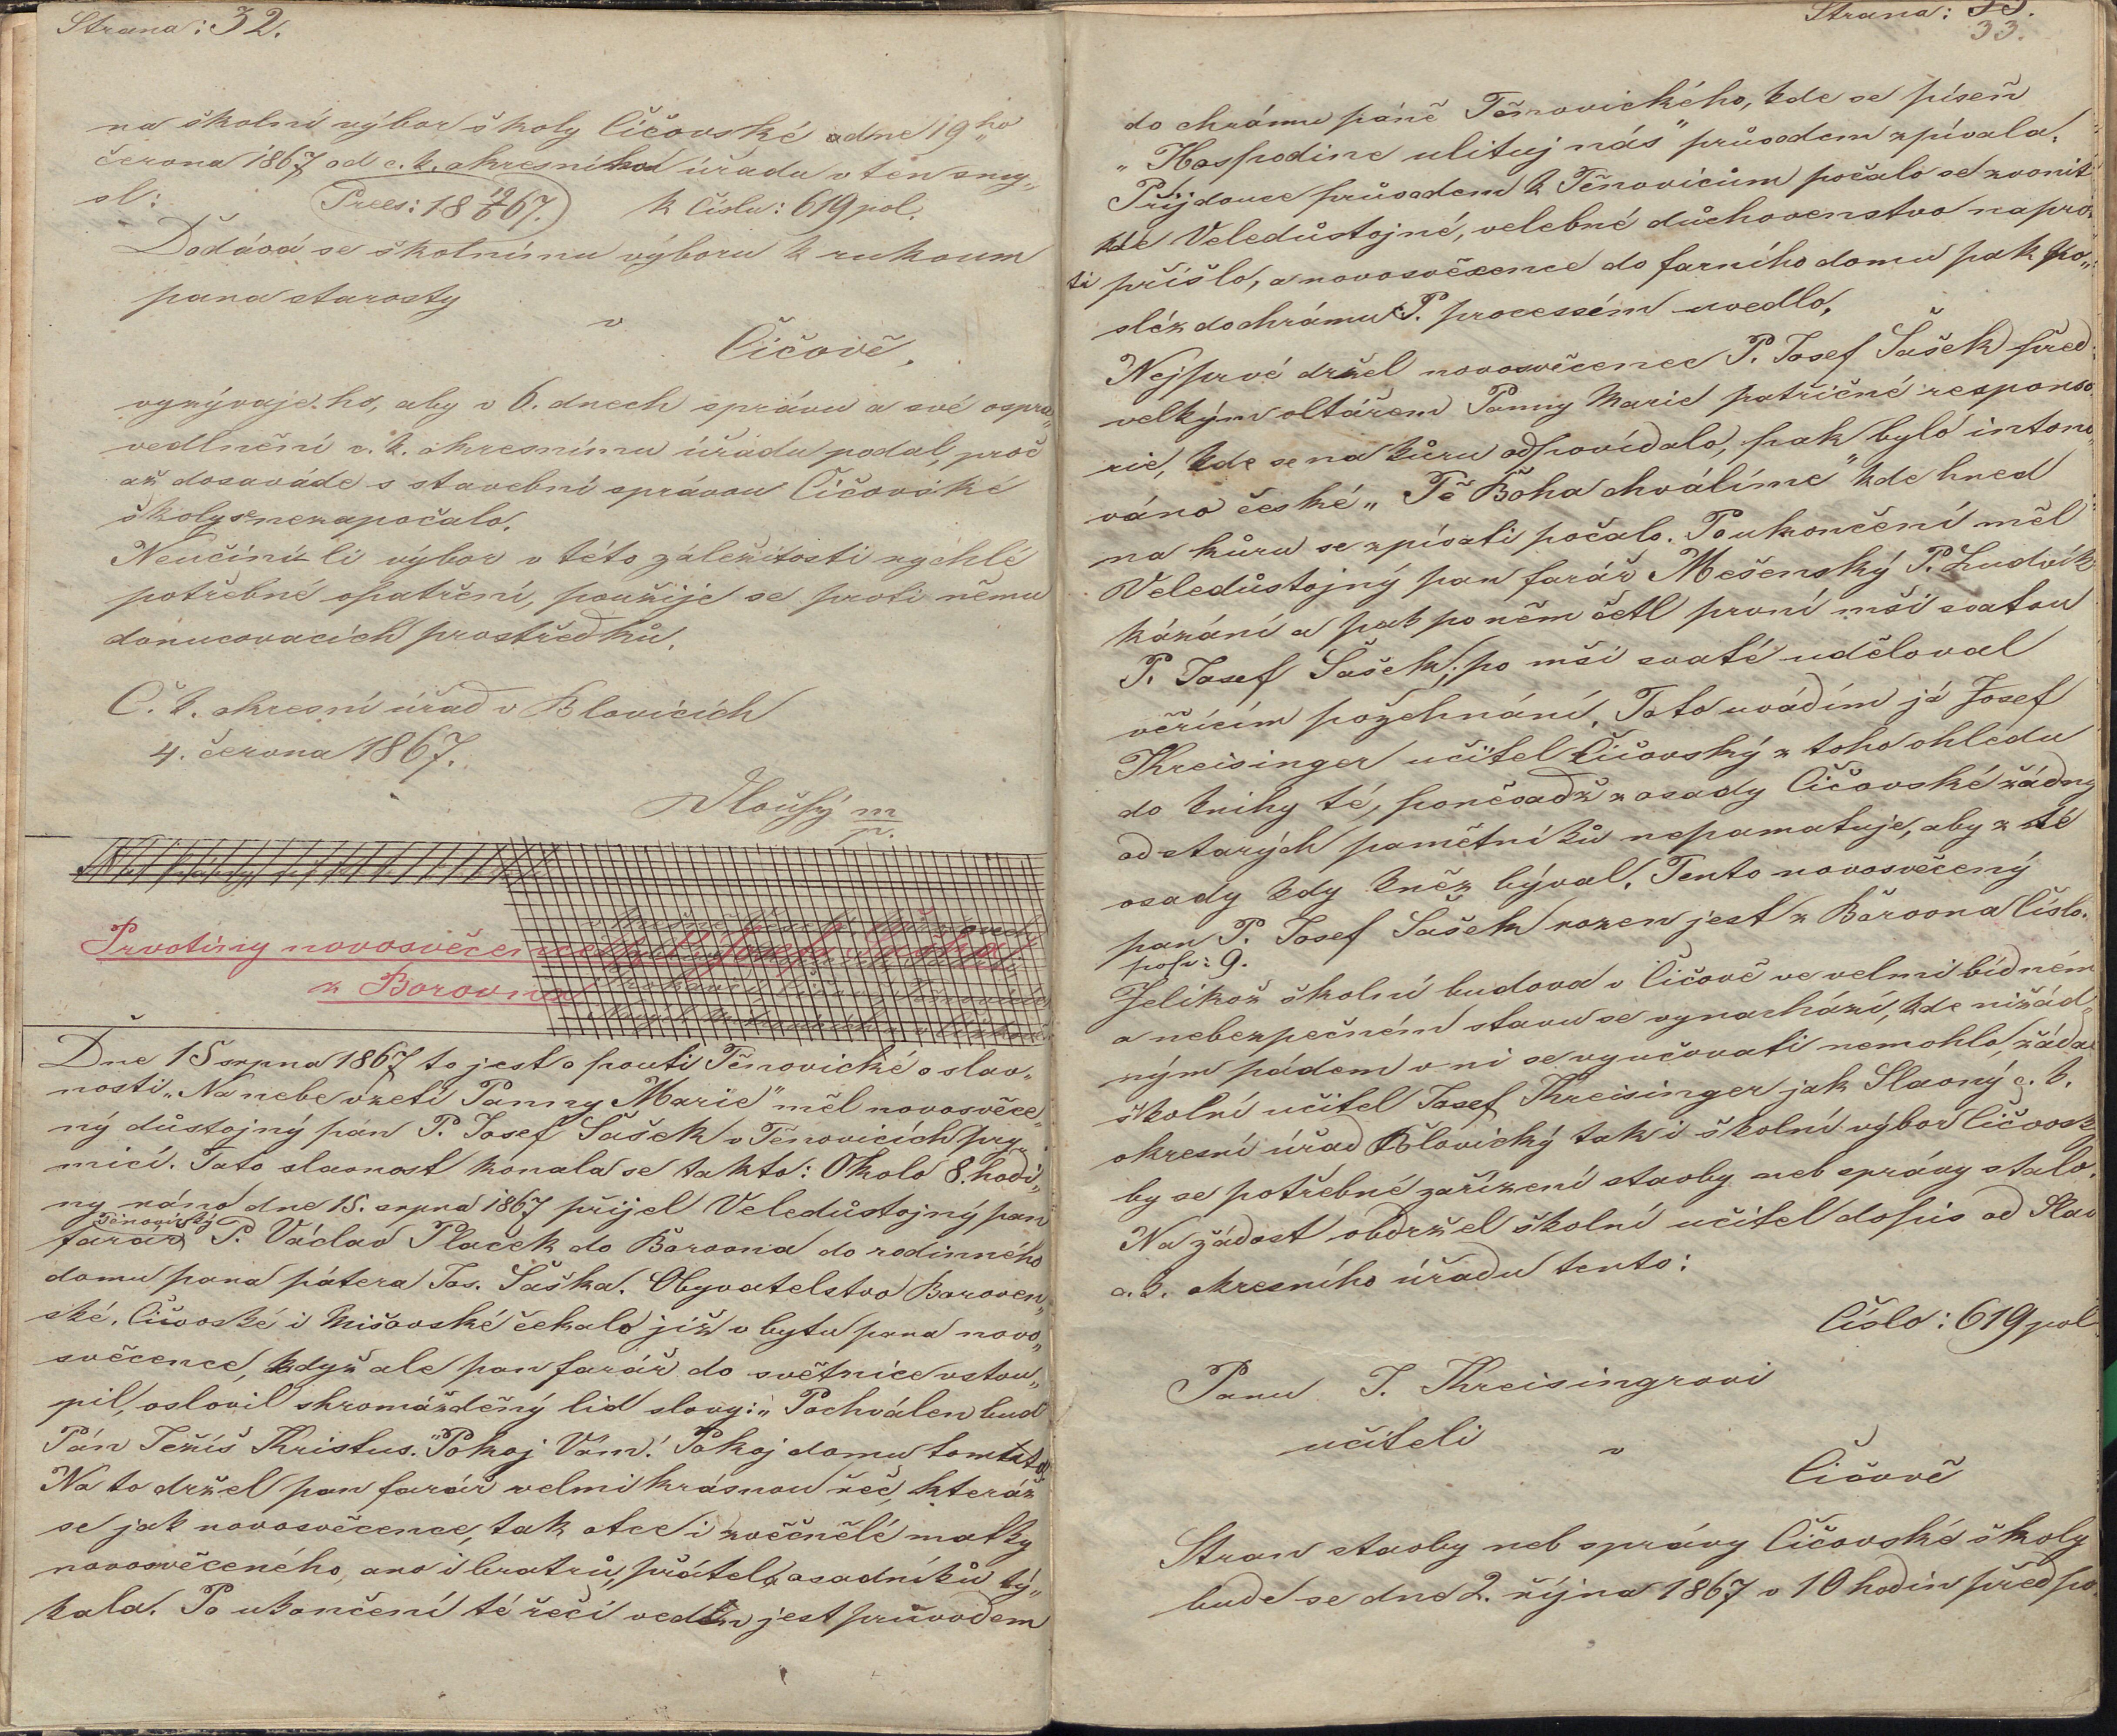 Strana: 32.
na školní výbor školy Čičovské dne 19ho
června 1867 od c. k. okresního úřadu v ten smy„
sl: Prees: 18 19/6 67. k Číslu: 619 pol.
Dodává se školnímu výboru k rukoum
pana starosty
v
Čičově,
vyzývaje. ho, aby v 6. dnech správu a své ospra„
vedlnění c. k. okresnímu úřadu podal, proč
až dosaváde s stavební správou Čičovské
školy se nezapočalo.
Neučiní-li výbor v této záležitosti rychlé
potřebné opatření, použije se proti němu
donucovacích prostředků.
C. k. okresní úřad v Blovicích
4. června 1867.
Dlouhý m/p.
Prvotiny novosvěcence P. Josefa Šaška
z Borovna
Dne 15 srpna 1867 to jest o pouti Těnovické o slav„
nosti „Na nebe vzetí Panny Marie" měl novosvěce„
ný důstojný pán P. Josef Šašek v Těnovicích pry„
micí. Tato slavnost konala se takto: Okolo 8. hodi„
ny ráno dne 15. srpna 1867 přijel Veledůstojný pan
Těnovický
farář P. Václav Placek do Borovna do rodinného
domu pana pátera Jos. Šaška. Obyvatelstvo Boroven„
ské, Čičovské i Mišovské čekalo již v bytu pana novo„
svěcence, když ale pan farář do světnice vstou„
pil, oslovil shromážděný lid slovy: „Pochválen buď
Pán Ježíš Kristus." Pokoj Vám! Pokoj domu tomuto.
Na to držel pan farář velmi krásnou řeč, kteráž
se jak novosvěcence, tak otce i zvěčnělé matky
novosvěceného, ano i bratrů, přátel, osadníků tý„
kala. Po ukončení té řeči veden jest průvodem
Strana: 33.
33.
do chrámu páně Těnovického, kde se píseň
„Hospodine ulituj nás" průvodem zpívala.
Přijdouce průvodem k Těnovicům počalo se zvonit
kde Veledůstojné, velebné důchovenstvo napro„
ti přišlo, a novosvěcence do farního domu pak po„
sléz do chrámu P. processém uvedlo.
Nejprvé držel novosvěcenec P. Josef Šašek před
velkým oltářem Panny Marie patřičné responso„
rie, kde se na kůru odpovídalo, pak bylo intono„
váno české „Tě Boha chválíme" kde hned
na kůru se zpívati počalo. Po ukončení měl
Veledůstojný pan farář Mešenský P. Ludvík
kázání a pak po něm četl první mši svatou
P. Josef Šašek; po mši svaté uděloval
věřícím požehnání. Toto uvádím já Josef
Kreisinger učitel Čičovský z toho ohledu
do knihy té, poněvadž z osady Čičovské žádný
od starých pamětníků nepamatuje, aby z té
osady kdy kněz býval. Tento novosvěcený
pan P. Josef Šašek rozen jest z Borovna Číslo.
pop: 9.
Jelikož školní budova v Čičově ve velmi bídném
a nebezpečném stavu se vynachází, kde nižád„
ným pádem v ni se vyučovati nemohlo, žádal
školní učitel Josef Kreisinger jak Slavný c. k.
okresní úřad Blovický tak i školní výbor Čičovsk
by se potřebné zařízení stavby neb správy stalo.
Na žádost obdržel školní učitel dopis od Slav
c. k. okresního úřadu tento:
Číslo: 619 pol
Panu J. Kreisingrovi
učiteli
v
Čičově
Stran stavby neb správy Čičovské školy
bude se dne 2. října 1867 v 10 hodin před po„